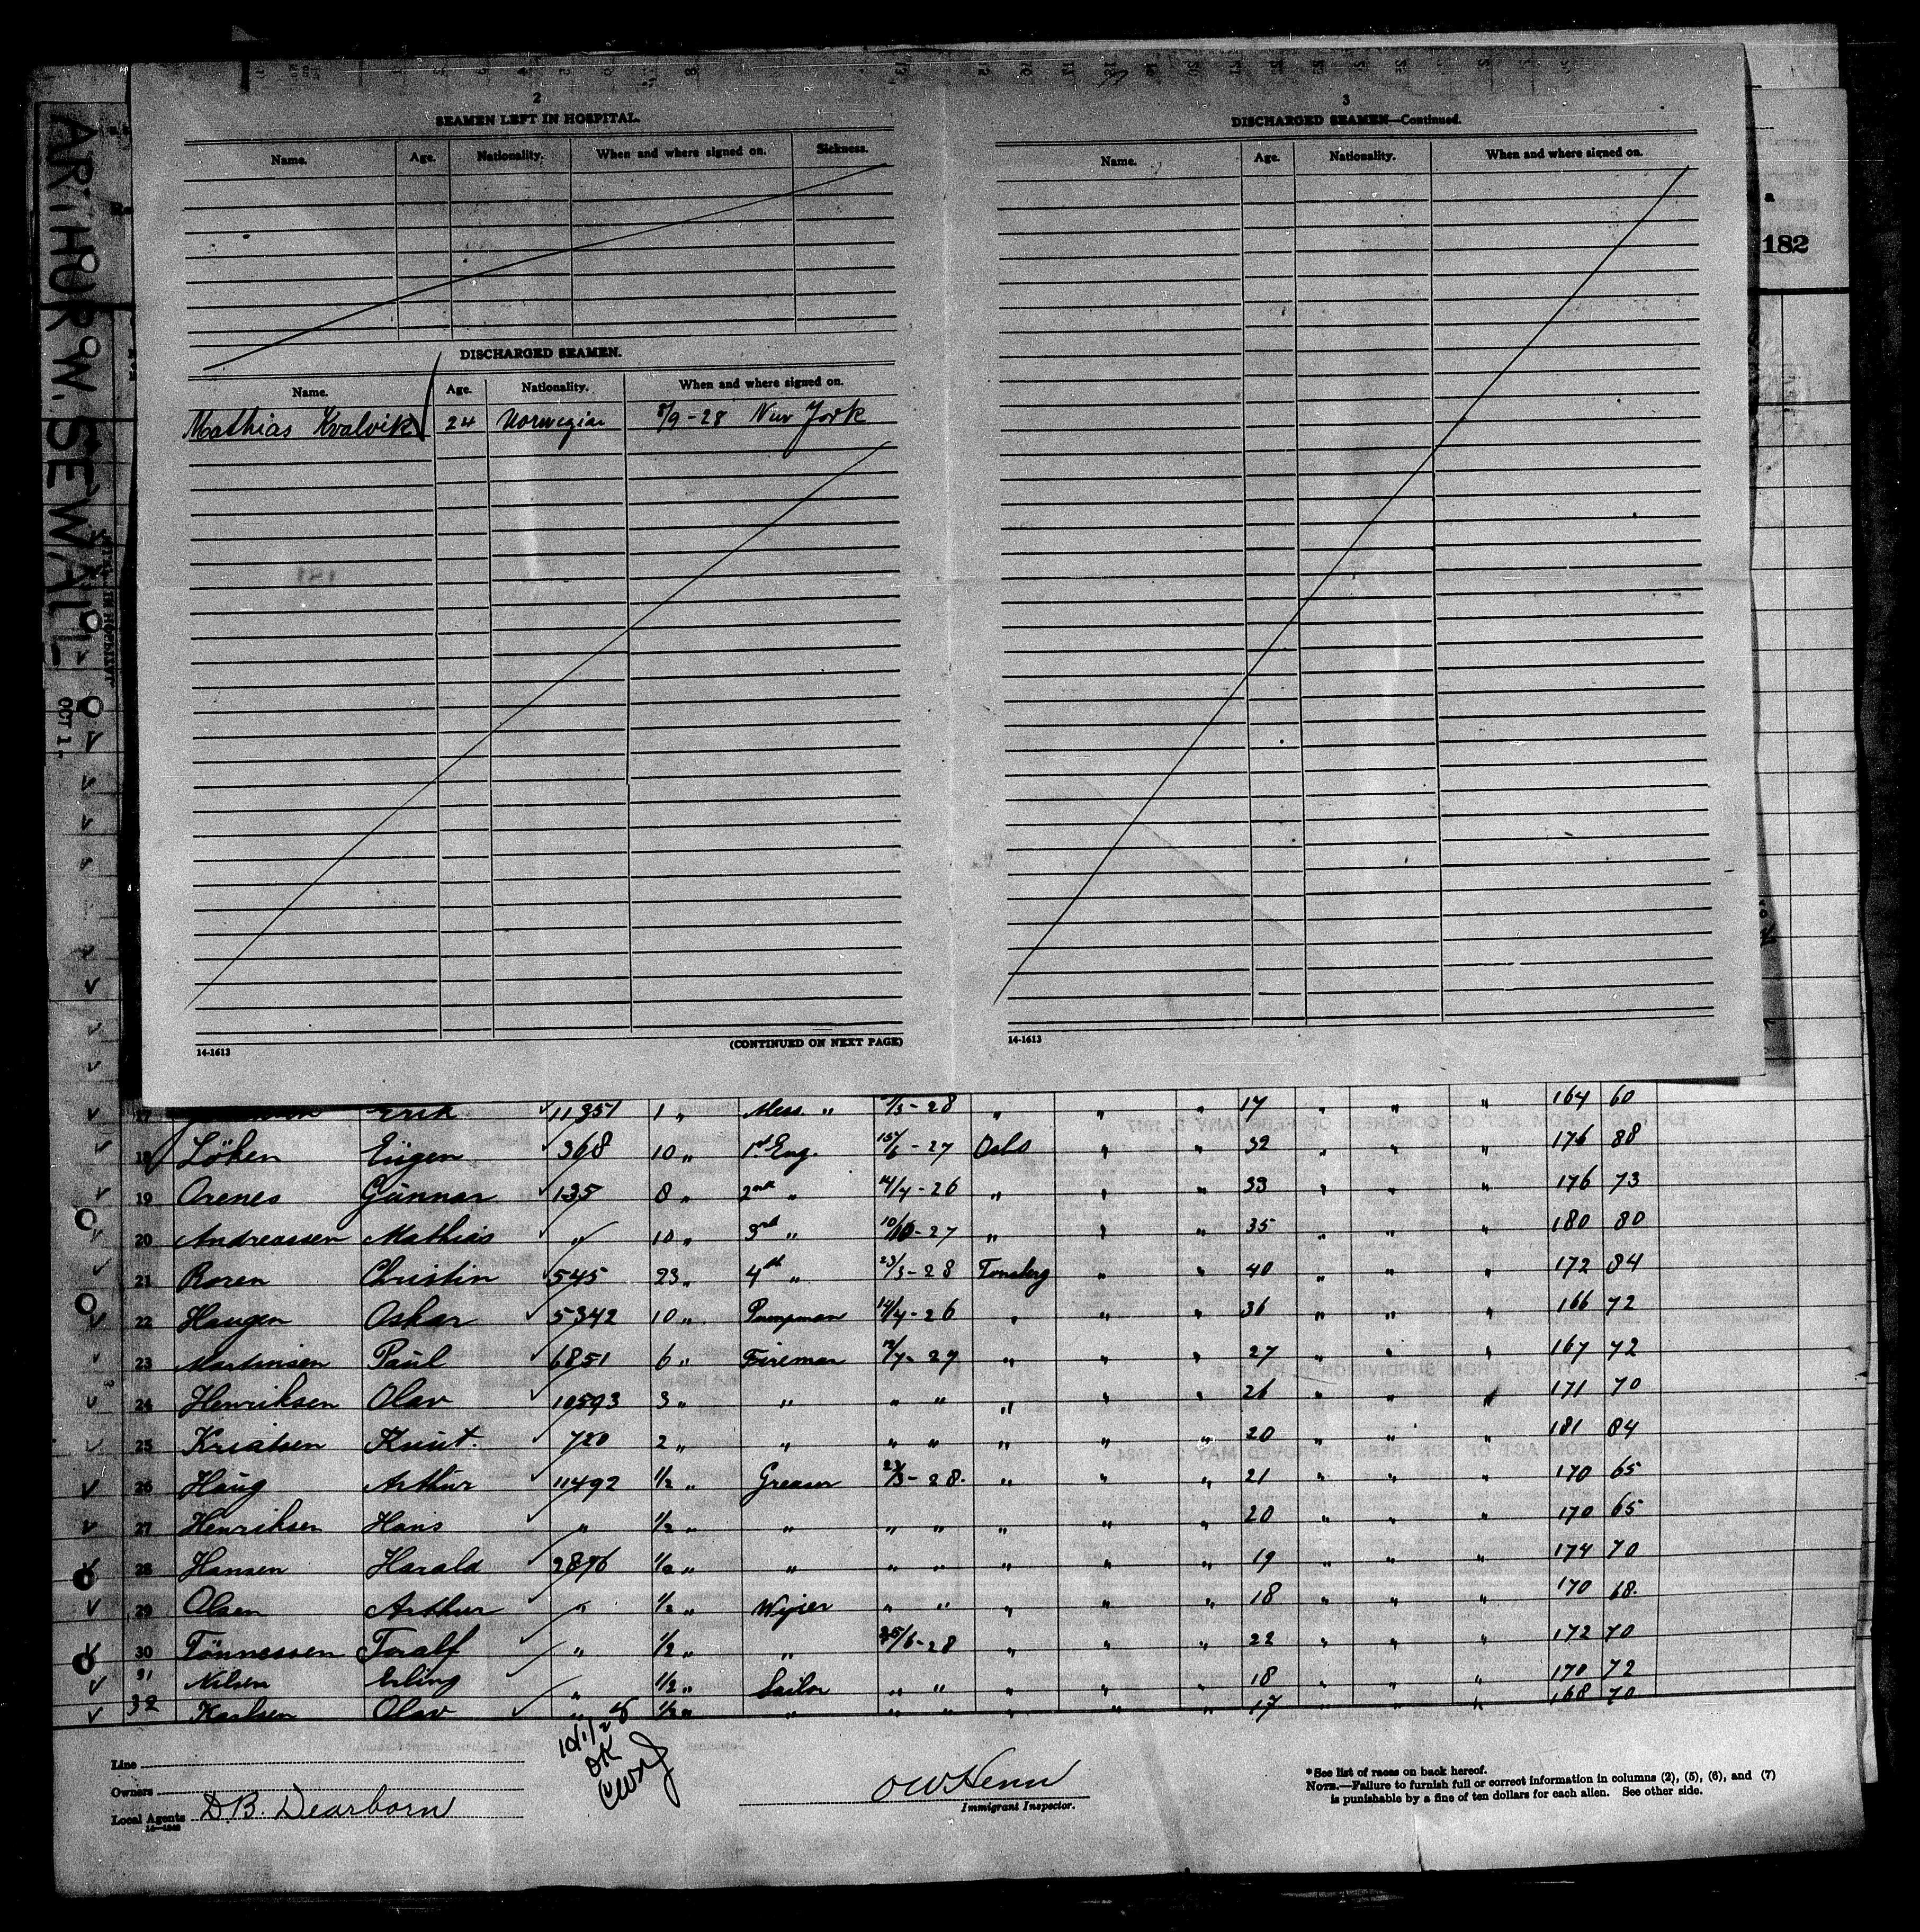 ARTHUR W. SEWALL
OCT 1-
182
2
SEAMEN LEFT IN HOSPITAL.
Name. Age. Nationality. When and where signed on. Sickness.
DISCHARGED SEAMEN.
Name. Age. Nationality. When and where signed on.
Mathias Kvalvik 24 Norwegian 8/9-28 New York
14-1613 (CONTINUED ON NEXT PAGE)
3
DISCHARGED SEAMEN—Continued.
Name. Age. Nationality. When and where signed on.
14-1613
17 Erik 11351 1 " Mess. " /3-28 " " " 17 " " " 164 60
18 Löken Eügen 368 10 " 1st Eng. 15/6-27 Oslo " " 32 " " " 176 88
19 Orenes Günnar 135 8 " 2nd " 14/4-26 " " " 33 " " " 176 73
20 Andreassen Mathias " 10 " 3rd " 10/10-27 " " " 35 " " " 180 80
21 Roren Christin 545 23 " 4th " 23/3-28 Tonsberg " " 40 " " " 172 84
22 Haugen Oskar 5342 10 " Pumpman 14/4-26 " " " 36 " " " 166 72
23 Martinsen Paül 6851 6 " Fireman /7-27 " " " 27 " " " 167 72
24 Henriksen Olav 10593 3 " " " " " " " 26 " " " 171 70
25 Knüt. 720 2 " " " " " " " 20 " " " 181 84
26 Haüg Arthur 11492 1/2 " Greaser /3-28. " " " 21 " " " 170 65
27 Henriksen Hans " 1/2 " " " " " " " 20 " " " 170 65
28 Hansen Harald 2876 1/2 " " " " " " " 19 " " " 174 70
29 Olsen Arthur " 1/2 " Wipier " " " " " 18 " " " 170 68.
30 Tönnessen Toralf " 1/2 " " 25/6-28 " " " 22 " " " 172 70
31 Nilsen Erling " 1/2 " Sailor " " " " " 18 " " " 170 72
32 Karlsen Olav " 1/2 " " " " " " " 17 " " " 168 70
10/1/28
OK
Line
Owners
Local Agents D.B. Dearborn
Immigrant Inspector.
*See list of races on back hereof.
NOTE.—Failure to furnish full or correct information in columns (2), (5), (6), and (7)
is punishable by a fine of ten dollars for each alien. See other side.